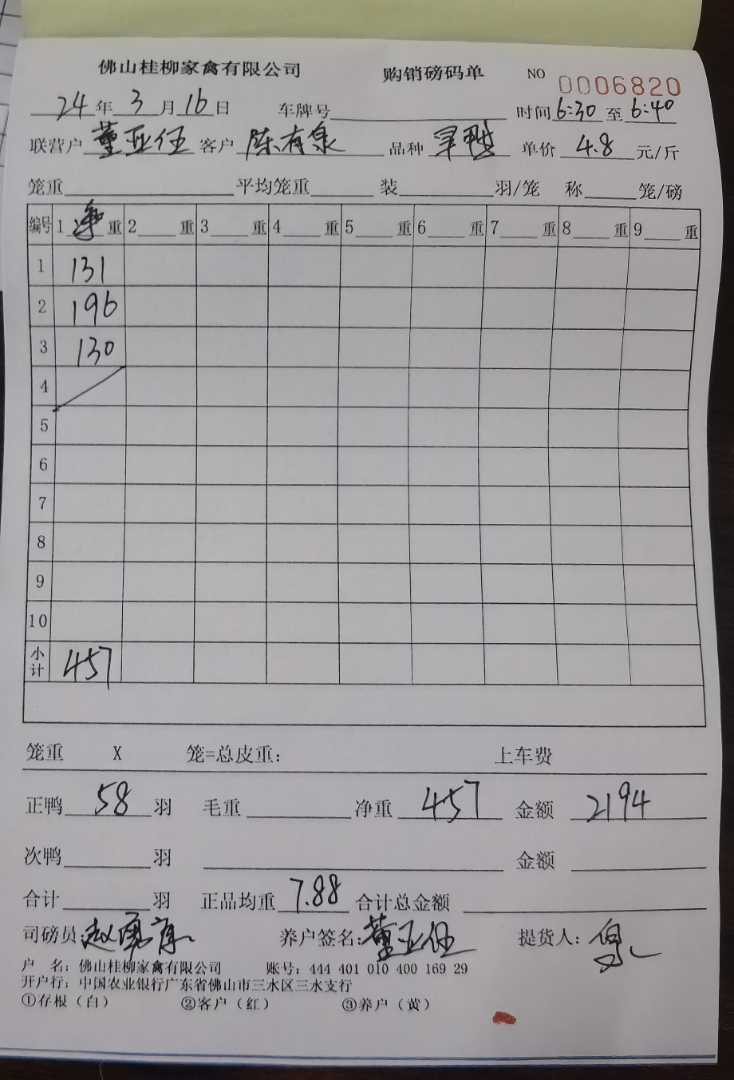 佛山桂柳家禽有限公司 购销磅码单 NO 0006820
24年3月16日 车牌号 时间6:30至6:40
联营户 董亚伍 客户 陈有泉 品种 单价 4.8 元/斤
笼重 平均笼重 装 羽/笼 称 笼/磅
编号 1 净 重 2 重 3 重 4 重 5 重 6 重 7 重 8 重 9 重
1 131
2 196
3 130
4
5
6
7
8
9
10
小计 457
笼重 X 笼=总皮重: 上车费
正鸭 58 羽 毛重 净重 457 金额 2194
次鸭 羽 金额
合计 羽 正品均重 7.88 合计总金额
司磅员: 养户签名: 董亚伍 提货人:
户 名: 佛山桂柳家禽有限公司 账号: 444 401 010 400 169 29
开户行: 中国农业银行广东省佛山市三水区三水支行
①存根（白） ②客户（红） ③养户（黄）